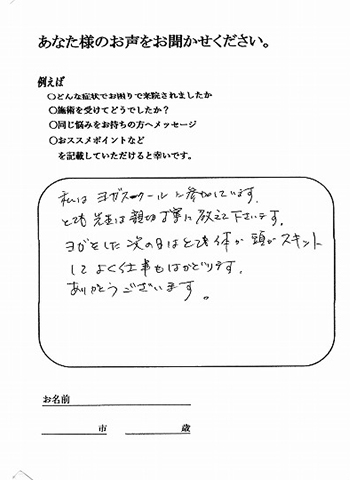 あなた様のお声をお聞かせください。
例えば
○どんな症状でお困りで来院されましたか
○施術を受けてどうでしたか？
○同じ悩みをお持ちの方へメッセージ
○おススメポイントなど
を記載していただけると幸いです。
私はヨガスクールに参加しています。
とても先生は親切丁寧に教えて下さいます。
ヨガをした次の日はとても体が頭がスキント
してよく仕事もはかどります。
ありがとうございます。
お名前
市 歳